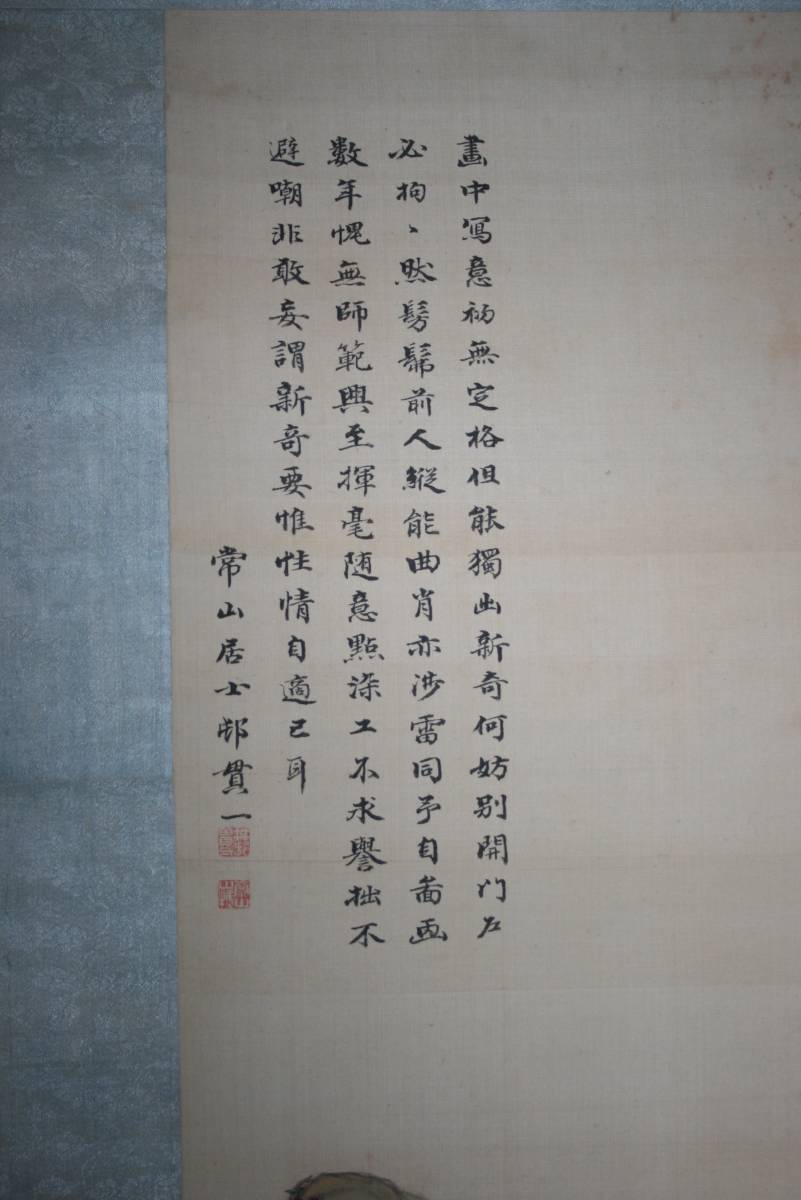 畫中寫意初無定格但能獨出新奇何妨別開門户
必拘丶然髣髴前人縱能曲肖亦涉雷同予自畫
數年愧無師範興至揮毫随意點染工不求譽拙不
避嘲非敢妄謂新奇要惟性情自適已耳
常山居士邨貫一